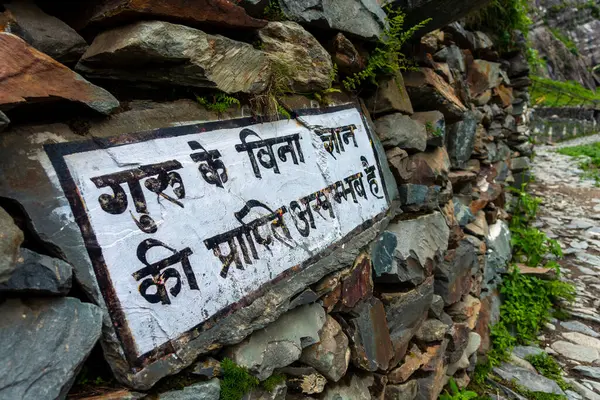 गुरु के बिना ज्ञान
की प्राप्ति असम्भव है